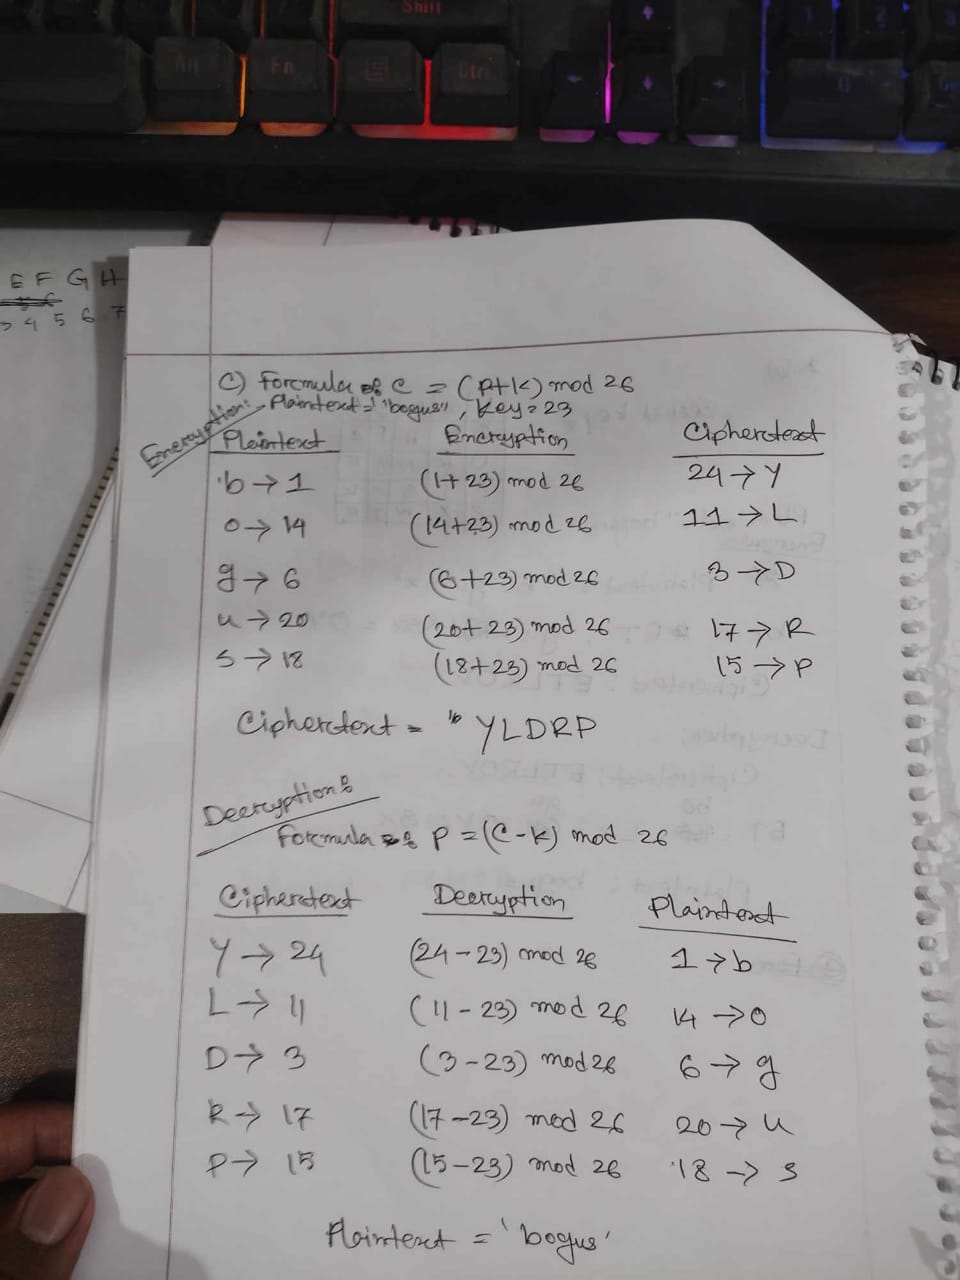 Shift
Alt Fn Ctrl
E F G H
4 5 6 7
C) Formula of C = (P+K) mod 26
Encryption: Plaintext = "bogus", Key = 23
Plaintext Encryption Ciphertext
b → 1 (1+23) mod 26 24 → Y
o → 14 (14+23) mod 26 11 → L
g → 6 (6+23) mod 26 3 → D
u → 20 (20+23) mod 26 17 → R
s → 18 (18+23) mod 26 15 → P
Ciphertext = " YLDRP
Decryption:
Formula : P = (C-K) mod 26
Ciphertext Decryption Plaintext
Y → 24 (24-23) mod 26 1 → b
L → 11 (11-23) mod 26 14 → o
D → 3 (3-23) mod 26 6 → g
R → 17 (17-23) mod 26 20 → u
P → 15 (15-23) mod 26 18 → s
Plaintext = 'bogus'